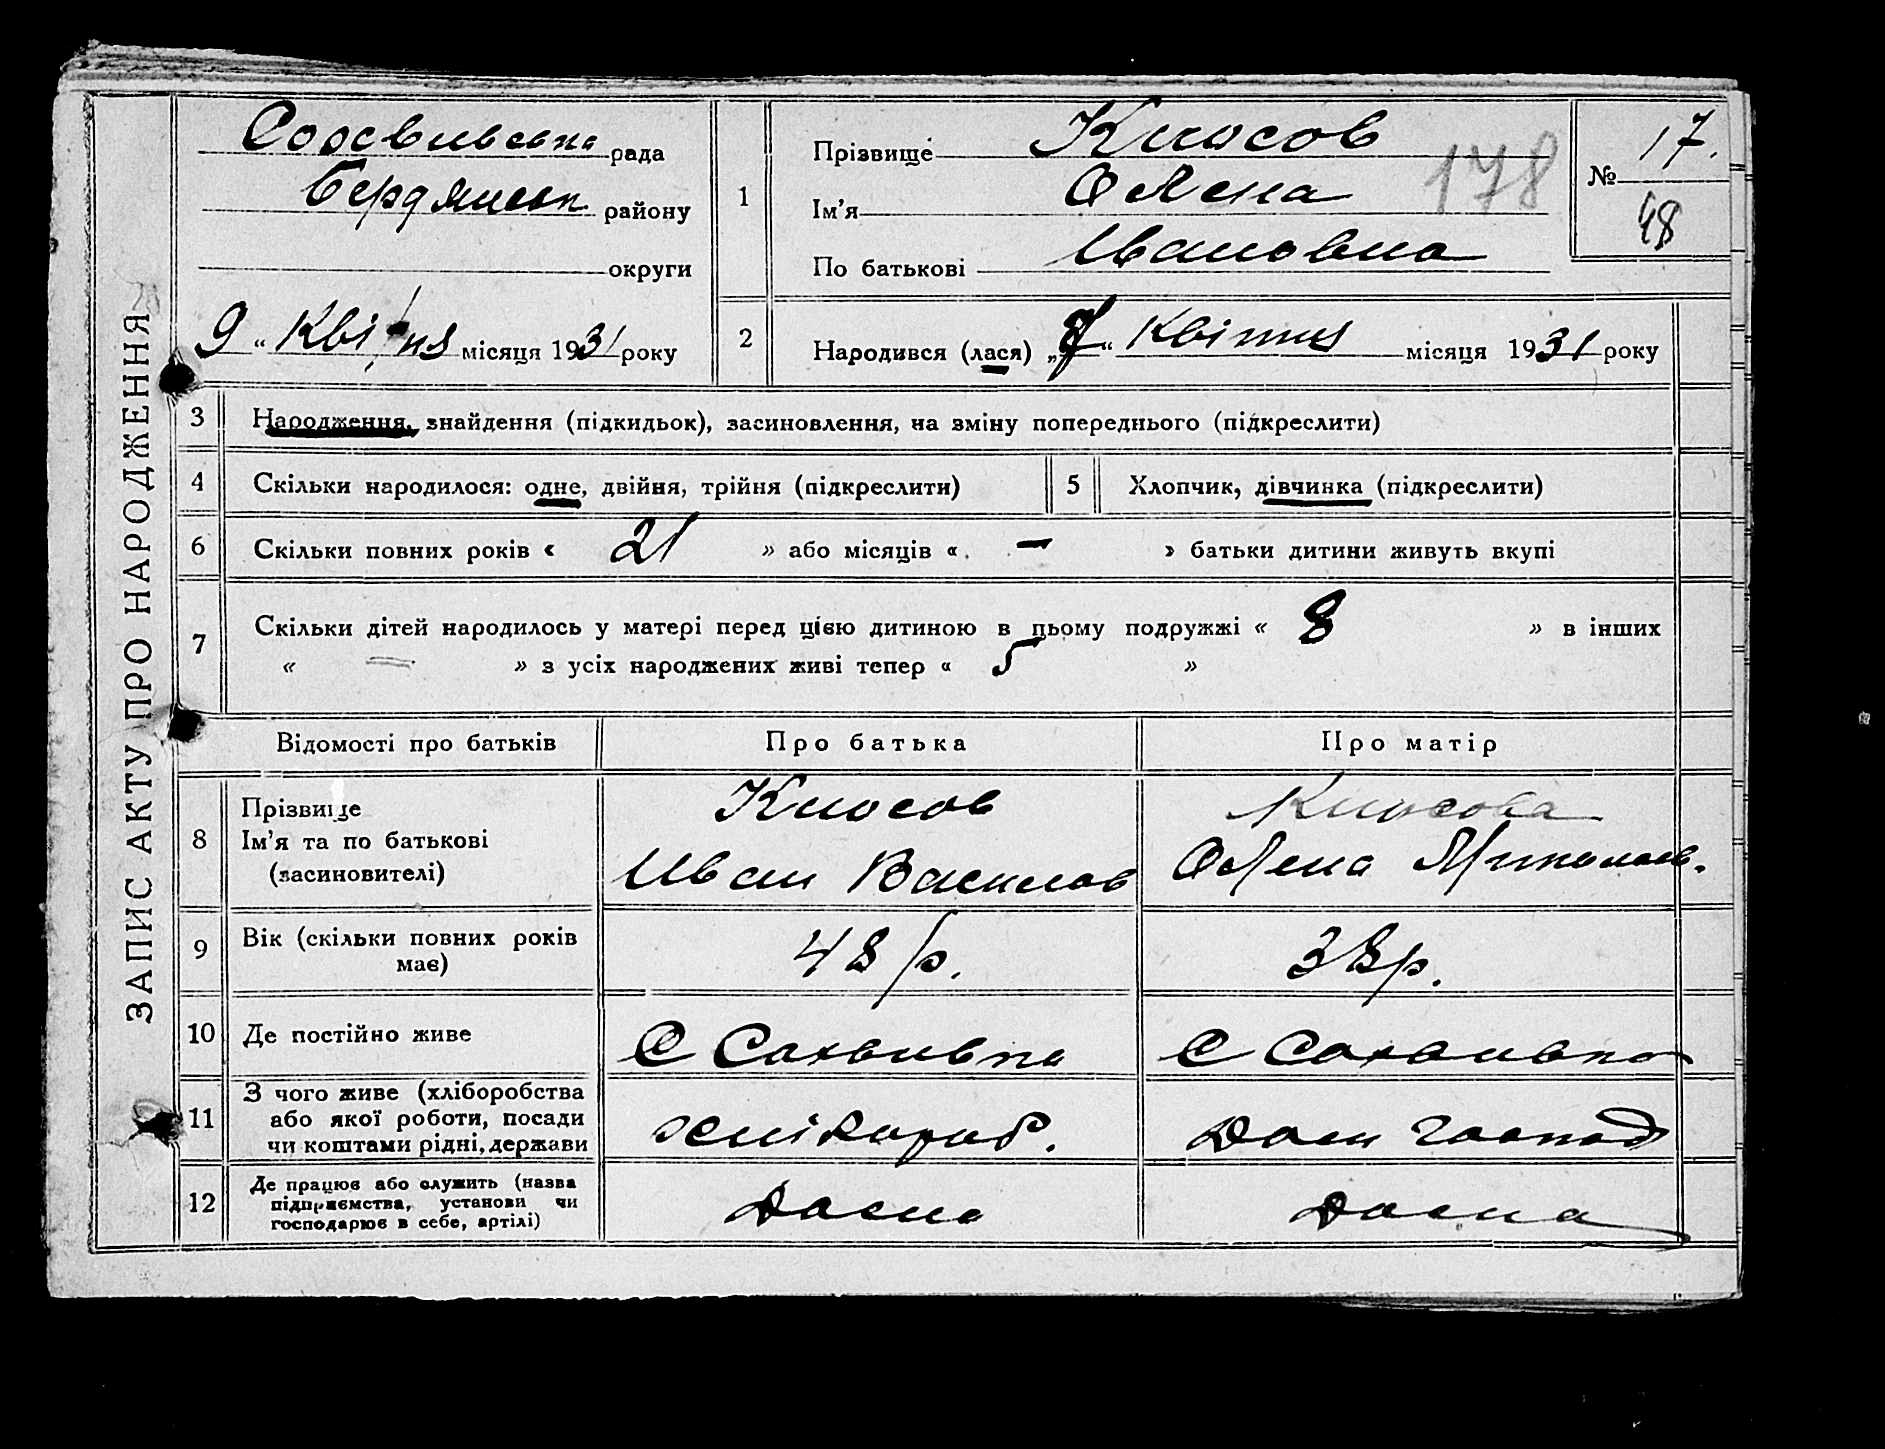 ЗАПИС АКТУ ПРО НАРОДЖЕННЯ
рада
Бердянськ району
округи
9 " Квітня місяця 1931 року
1
Прізвище Кносов
Ім'я Олена
По батькові Ивановна
178
№ 17.
48
2
Народився (лася) „ " Квітня місяця 1931 року
3 Народження, знайдення (підкидьок), засиновлення, на зміну попереднього (підкреслити)
4 Скільки народилося: одне, двійня, трійня (підкреслити) 5 Хлопчик, дівчинка (підкреслити)
6 Скільки повних років « 21 » або місяців « — » батьки дитини живуть вкупі
7 Скільки дітей народилось у матері перед цією дитиною в цьому подружжі « 8 » в інших
« — » з усіх народжених живі тепер « 5 »
Відомості про батьків Про батька Про матір
8 Прізвище Кносов Кносова
Ім'я та по батькові
(засиновителі) Иван Василов Олена Миколаев.
9 Вік (скільки повних років має) 48 р. 38 р.
10 Де постійно живе С С
11 З чого живе (хліборобства
або якої роботи, посади
чи коштами рідні, держави Дом господ
12 Де працює або служить (назва
підприємства, установи чи
господарює в себе, артілі) Дома Дома